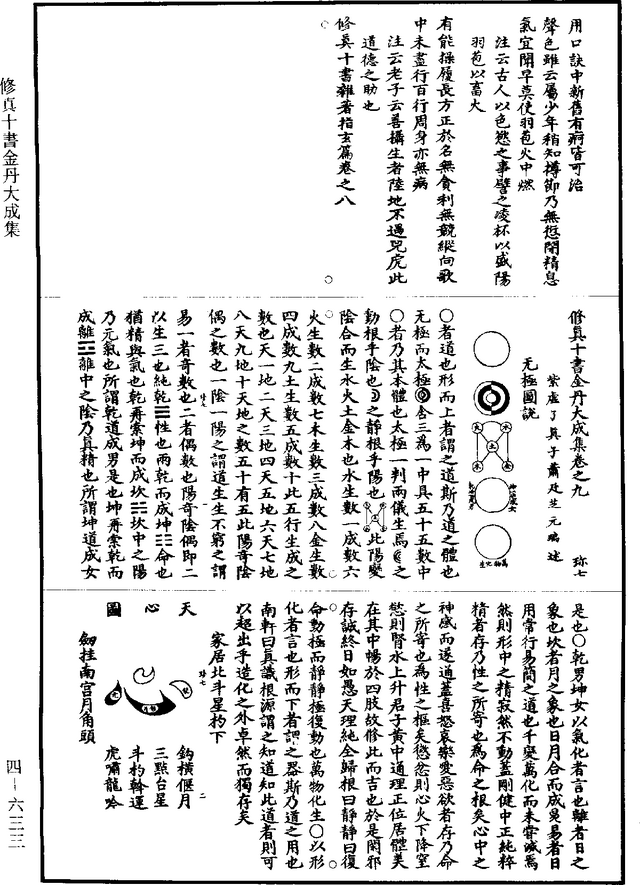 修真十書金丹大成集
四—六三三
用口訣中新舊有病皆可治
聲色雖云屬少年稍知撙節乃無愆閉精息
氣宜聞早莫使羽苞火中燃
注云古人以色慾之事譬之凌杯以盛陽
羽苞以畜火
有能操履長方正於名無貪利無競縱向歌
中未盡行百行周身亦無病
注云老子云善攝生者陸地不遇兕虎此
道德之助也
修真十書雜著指玄篇卷之八
修真十書金丹大成集卷之九 珎七
紫虛了真子蕭廷芝元瑞述
无極圖說
坤道成女
乾道成男
萬物化生
○者道也形而上者謂之道斯乃道之體也
无極而太極含三為一中具五十五數中
○者乃其本體也太極一判兩儀生焉之
動根乎陰也之靜根乎陽也此陽變
陰合而生水火土金木也水生數一成數六
火生數二成數七木生數三成數八金生數
四成數九土生數五成數十此五行生成之
數也天一地二天三地四天五地六天七地
八天九地十天地之數五十有五此陽奇陰
偶之數也一陰一陽之謂道生生不窮之謂
易一者奇數也二者偶數也陽奇陰偶即二
以生三也純乾☰性也兩乾而成坤☷命也
猶精與氣也乾再索坤而成坎☵坎中之陽
乃元氣也所謂乾道成男是也坤再索乾而
成離☲離中之陰乃真精也所謂坤道成女
是也○乾男坤女以氣化者言也離者日之
象也坎者月之象也日月合而成易易者日
用常行易簡之道也千變萬化而未嘗滅焉
然則形中之精寂然不動蓋剛健中正純粹
精者存乃性之所寄也為命之根矣心中之
神感而遂通蓋喜怒哀樂愛惡欲者存乃命
之所寄也為性之樞矣慾忿則心火下降窒
慾則腎水上升君子黃中通理正位居體美
在其中暢於四肢故修此而吉也於是閑邪
存誠終日如愚天理純全歸根曰靜靜曰復
命動極而靜靜極復動也萬物化生○以形
化者言也形而下者謂之器斯乃道之用也
南軒曰真識根源謂之知道知此道者則可
以超出乎造化之外卓然而獨存矣
家居北斗星杓下
天心圖
鈎橫偃月
三點台星
斗杓斡運
虎嘯龍吟
劍挂南宮月角頭